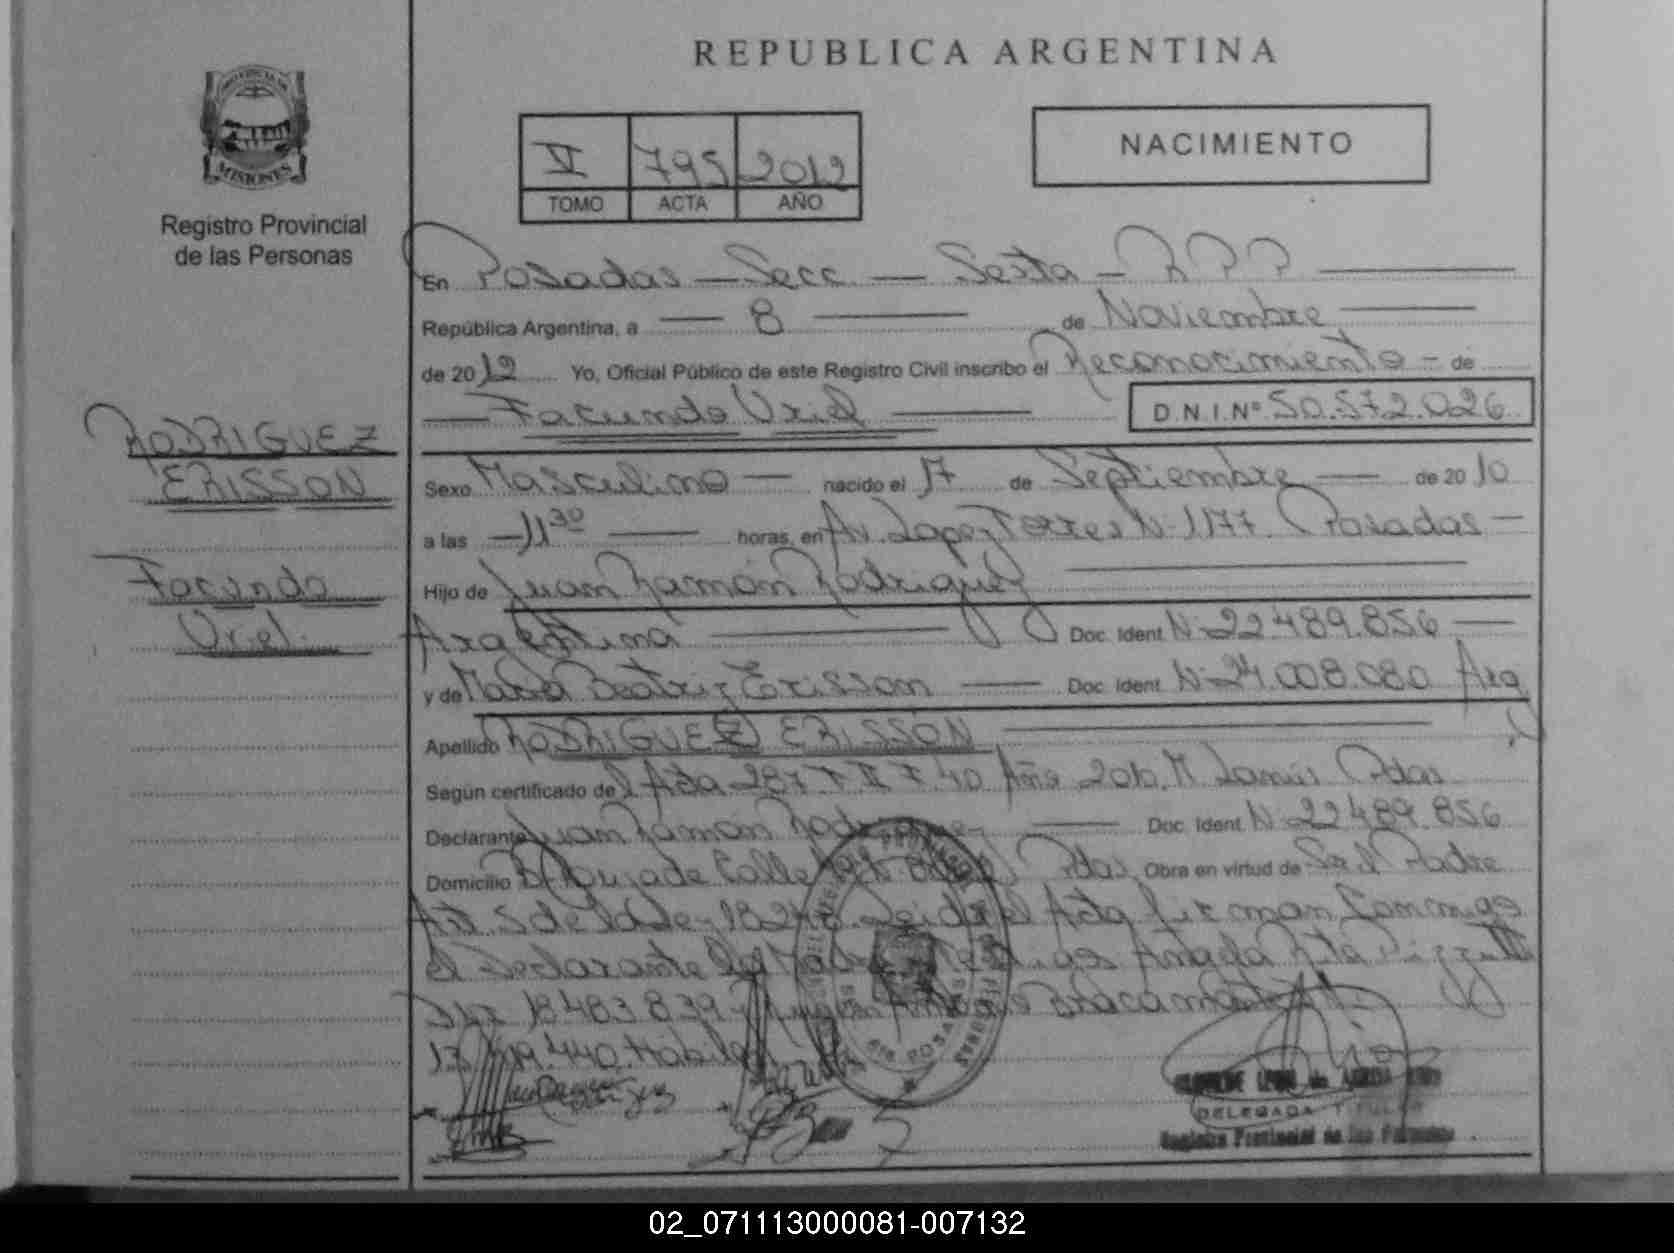 REPUBLICA ARGENTINA
PROVINCIA DE
MISIONES
Registro Provincial
de las Personas
V 795 2012
TOMO ACTA AÑO
NACIMIENTO
En Posadas - Secc. - Sexta - R P P
República Argentina, a 8 de Noviembre
de 2012 Yo, Oficial Público de este Registro Civil inscribo el Reconocimiento - de
Facundo Uriel D.N.I.Nº 50.572.026
RODRIGUEZ
ERISSON
Facundo
Uriel.
Sexo Masculino - nacido el 17 de Septiembre - de 2010
a las 11 30 horas, en Av. Lopez Torres Nº 1177. Posadas -
Hijo de Juan Ramón Rodriguez
Argentina Doc. Ident. Nº 22.489.856
y de Maria Beatriz Erisson Doc. Ident. Nº 24.008.080 Arg
Apellido RODRIGUEZ ERISSON
Según certificado del Acta 287 T II F 40 Año 2010. Pdas
Declarante Juan Ramón Rodriguez Doc. Ident. Nº 22.489.856
Domicilio Calle Pdas Obra en virtud de Ser el Padre
Art. 5 de la Ley 18.248. Leida el Acta firman Conmigo
el Declarante la Madre Testigos Rita
DNI 18.483.839
17. 440. Hábiles
POSADAS
DELEGADA TITULAR
Registro Provincial de las Personas
02_071113000081-007132